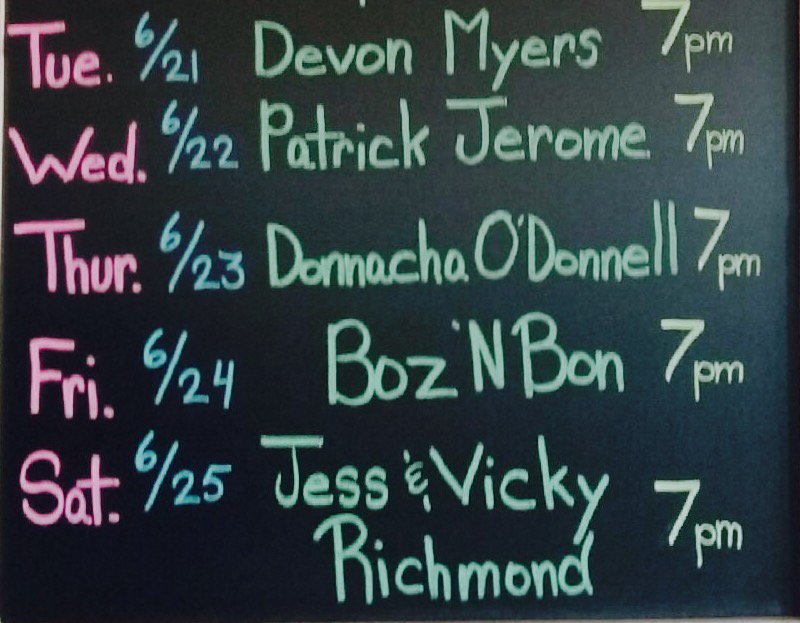 Tue. 6/21 Devon Myers 7pm
Wed. 6/22 Patrick Jerome 7pm
Thur. 6/23 Donnacha O'Donnell 7pm
Fri. 6/24 Boz 'N Bon 7pm
Sat. 6/25 Jess & Vicky
Richmond 7pm